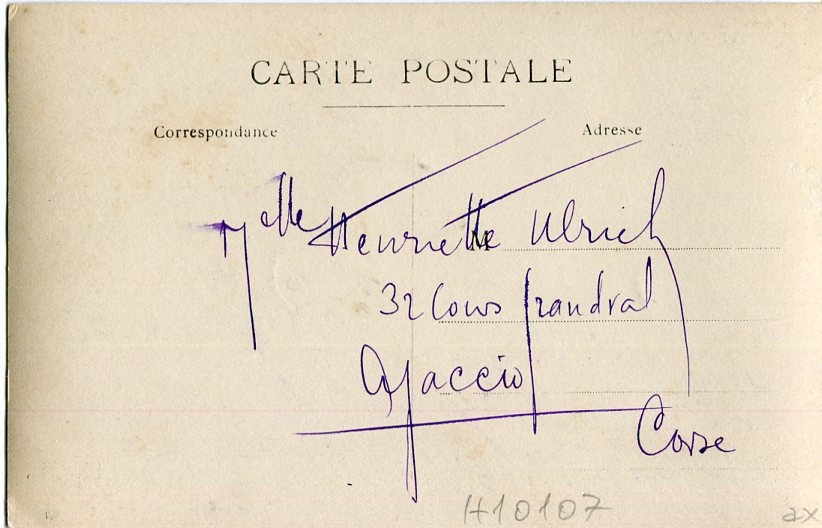 CARTE POSTALE
Correspondance
Adresse
Mlle Henriette Ulrich
M
32 Cours Grandval
Ajaccio
Corse
H10107
ax